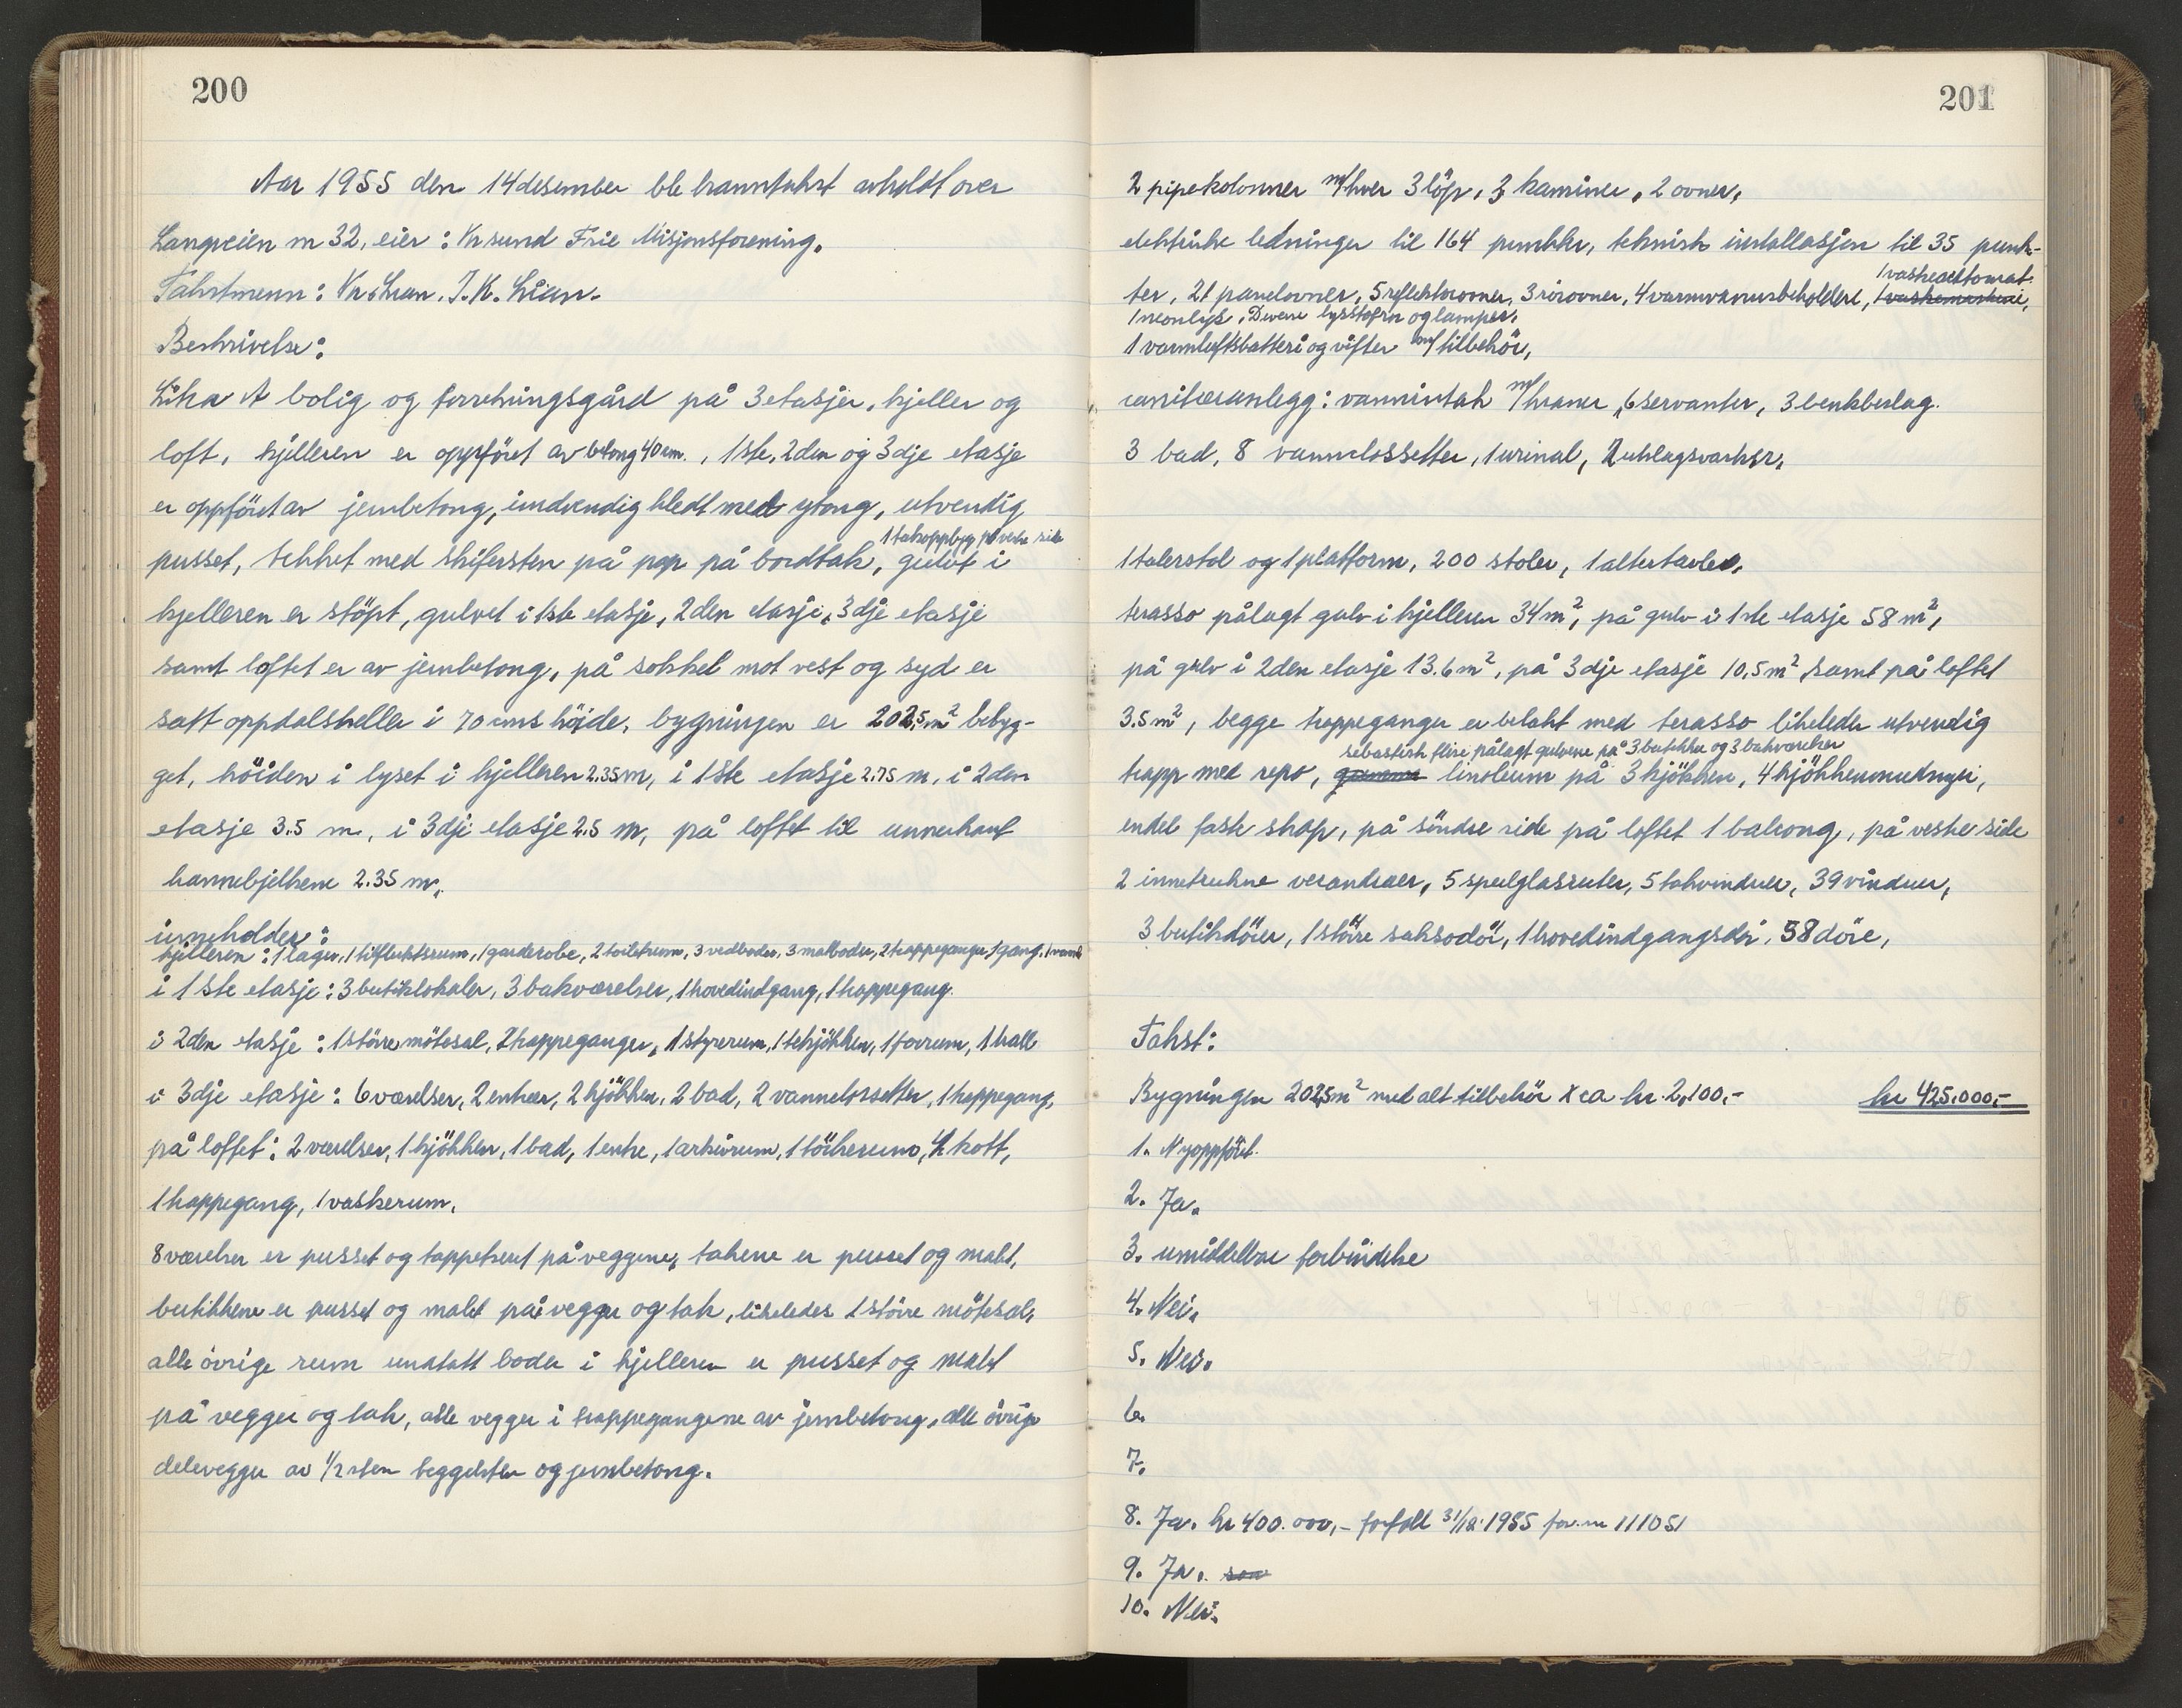 200
Aar 1955 den 14 desember ble branntakst avholdt over
Langveien nr 32, eier: Kr.sund Frie Misjonsforening.
Takstmenn: Kr. Lian. J. K. Lian.
Beskrivelse:
Litra A bolig og forretningsgård på 3 etasjer, kjeller og
loft, kjelleren er oppföret av betong 40 cm., 1ste, 2den og 3dje etasje
er oppföret av jernbetong, indvendig kledt med ytong, utvendig
1 takoppbyg på vestre side
pusset, tekket med skifersten på pap på bordtak, gulvet i
kjelleren er stöpt, gulvet i 1ste etasje, 2den etasje, 3dje etasje
samt loftet er av jernbetong, på sokkel mot vest og syd er
satt oppdalsheller i 70 cms höjde, bygningen er 202,5 m² bebyg-
get, höiden i lyset i kjelleren 2.35 m, i 1ste etasje 2.75 m, i 2den
etasje 3.5 m, i 3dje etasje 2.5 m, på loftet til unnerkant
hannebjelkene 2.35 m.
inneholder:
kjelleren: 1 lager, 1 tilfluktsrum, 1 garderobe, 2 toiletrum, 3 vedboder, 3 matboder, 2 trappeganger, 1 gang,
i 1ste etasje: 3 butiklokaler, 3 bakværelser, 1 hovedindgang, 1 trappegang.
i 2den etasje: 1 större mötesal, 2 trappeganger, 1 styrerum, 1 tekjökken, 1 forrum, 1 hall
i 3dje etasje: 6 værelser, 2 entreer, 2 kjökken, 2 bad, 2 vannclossetter, 1 trappegang,
på loftet: 2 værelser, 1 kjökken, 1 bad, 1 entre, 1 arkivrum, 1 törkerum, 4 kott,
1 trappegang, 1 vaskerum.
8 værelser er pusset og tappetsert på veggene, takene er pusset og malt,
butikkene er pusset og malet på vegger og tak, likeledes 1 större mötesal,
alle övrige rum unatatt boder i kjelleren er pusset og malet
på vegger og tak, alle vegger i trappegangene av jernbetong, alle övrige
delevegger av 1/2 sten teggelsten og jernbetong.
201
2 pipekolonner m/hver 3 löp, 3 kaminer, 2 ovner,
elektriske ledninger til 164 punkter, teknisk installasjon til 35 punk-
1 vaskeautomat.
ter, 21 panelovner, 5 reflektorovner, 3 rörovner, 4 varmvannsbeholdere, 1 vaskemaskine,
1 neonlys, Diverse lysstofrör og lamper,
1 varmluftsbatteri og vifter m/tilbehör,
sanitæranlegg: vanninntak m/kraner, 6 servanter, 3 benkbeslag.
3 bad, 8 vannclossetter, 1 urinal, 2 utslagsvasker,
1 talerstol og 1 platform, 200 stoler, 1 altertavle,
terasso pålagt gulv i kjelleren 34 m², på gulv i 1ste etasje 58 m²,
på gulv i 2den etasje 13.6 m², på 3dje etasje 10,5 m² samt på loftet
3.5 m², begge trappeganger er belakt med terasso likeledes utvendig
flise pålagt gulvene på 3 butikker og 3 bakværelser
trapp med repo, linoleum på 3 kjökken, 4 kjökkeninnredninger,
endel faste skap, på söndre side på loftet 1 balkong, på vestre side
2 inntrukne verandaer, 5 speilglasruter, 5 takvinduer, 39 vinduer,
3 butikdörer, 1 större saksodör, 1 hovedindgangsdör, 58 döre,
Takst:
Bygningen 202,5 m² med alt tilbehör x ca kr. 2,100,- kr 425.000,-
1. Nyoppfört.
2. Ja.
3. umiddelbar forbindelse
4. Nei.
5. Nei.
6.
7.
8. Ja. kr 400.000,- forfall 31/12. 1955 for. nr 111051
9. Ja.
10. Nei.